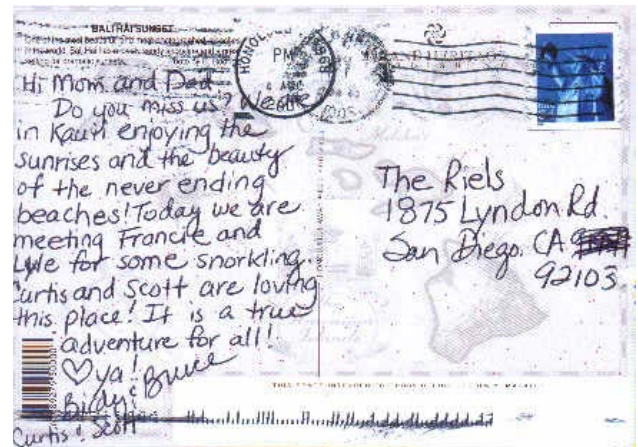 BALI HAI SUNSET
HONOLULU
PM
Hi Mom and Dad
Do you miss us? We are
in Kauai enjoying the
sunrises and the beauty
of the never ending
beaches! Today we are
meeting Francie and
Lyle for some snorkling.
Curtis and Scott are loving
this place! It is a true
adventure for all!
♡ ya!
Bruce
Curtis & Scott
The Riels
1875 Lyndon Rd.
San Diego, CA
92103